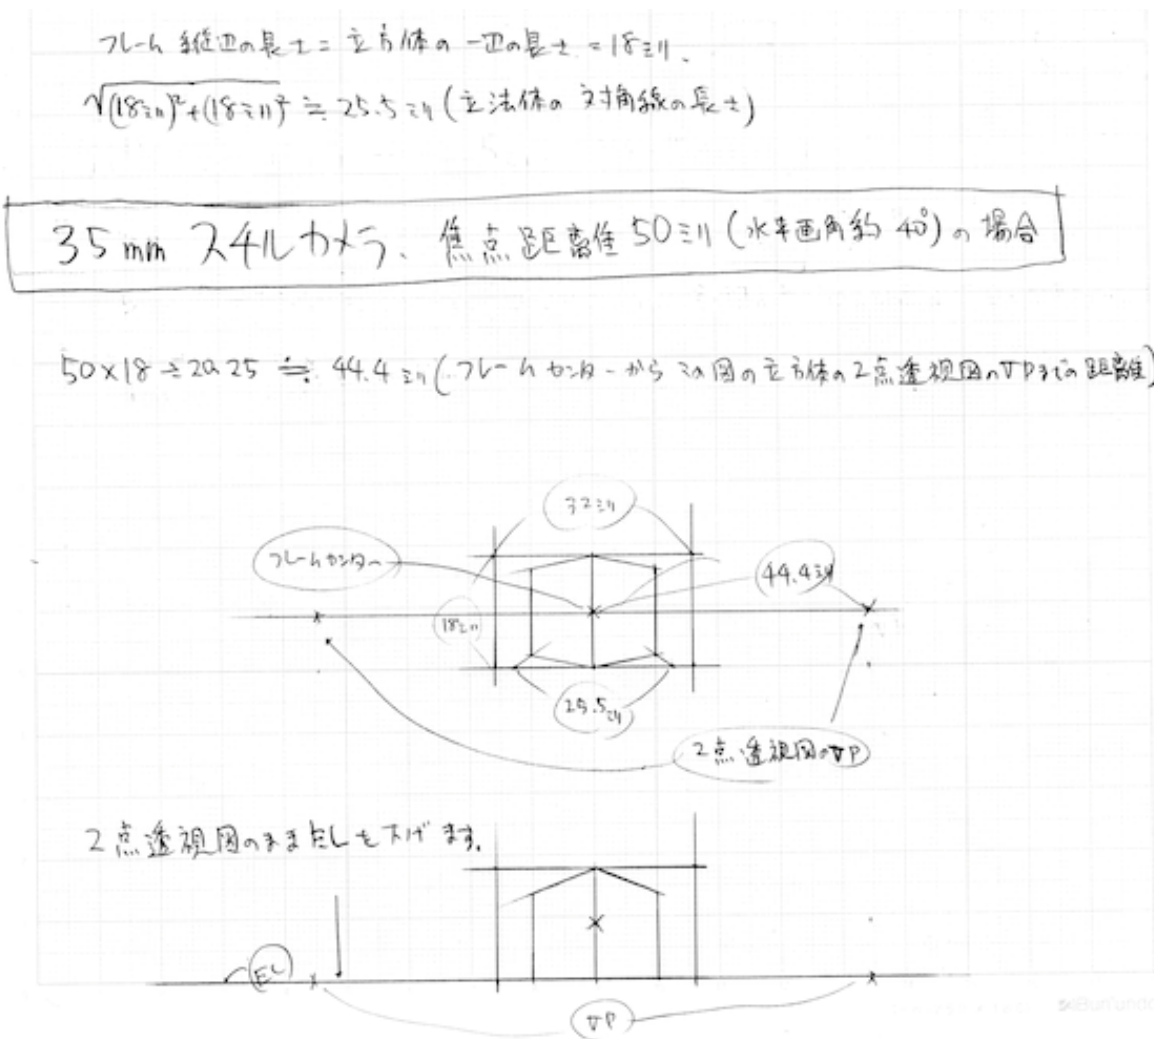 フレーム縦辺の長さ=立方体の一辺の長さ=18ミリ、
√(18ミリ)²+(18ミリ)² ≒ 25.5ミリ(立法体の対角線の長さ)
35mm スチルカメラ、焦点距離 50ミリ(水平画角約 40°)の場合
50×18÷20.25 ≒ 44.4ミリ(フレームセンターからこの図の立方体の2点透視図のVPまでの距離)
32ミリ
フレームセンター
44.4ミリ
18ミリ
25.5ミリ
2点透視図のVP
2点透視図のままELを下げます。
EL
VP